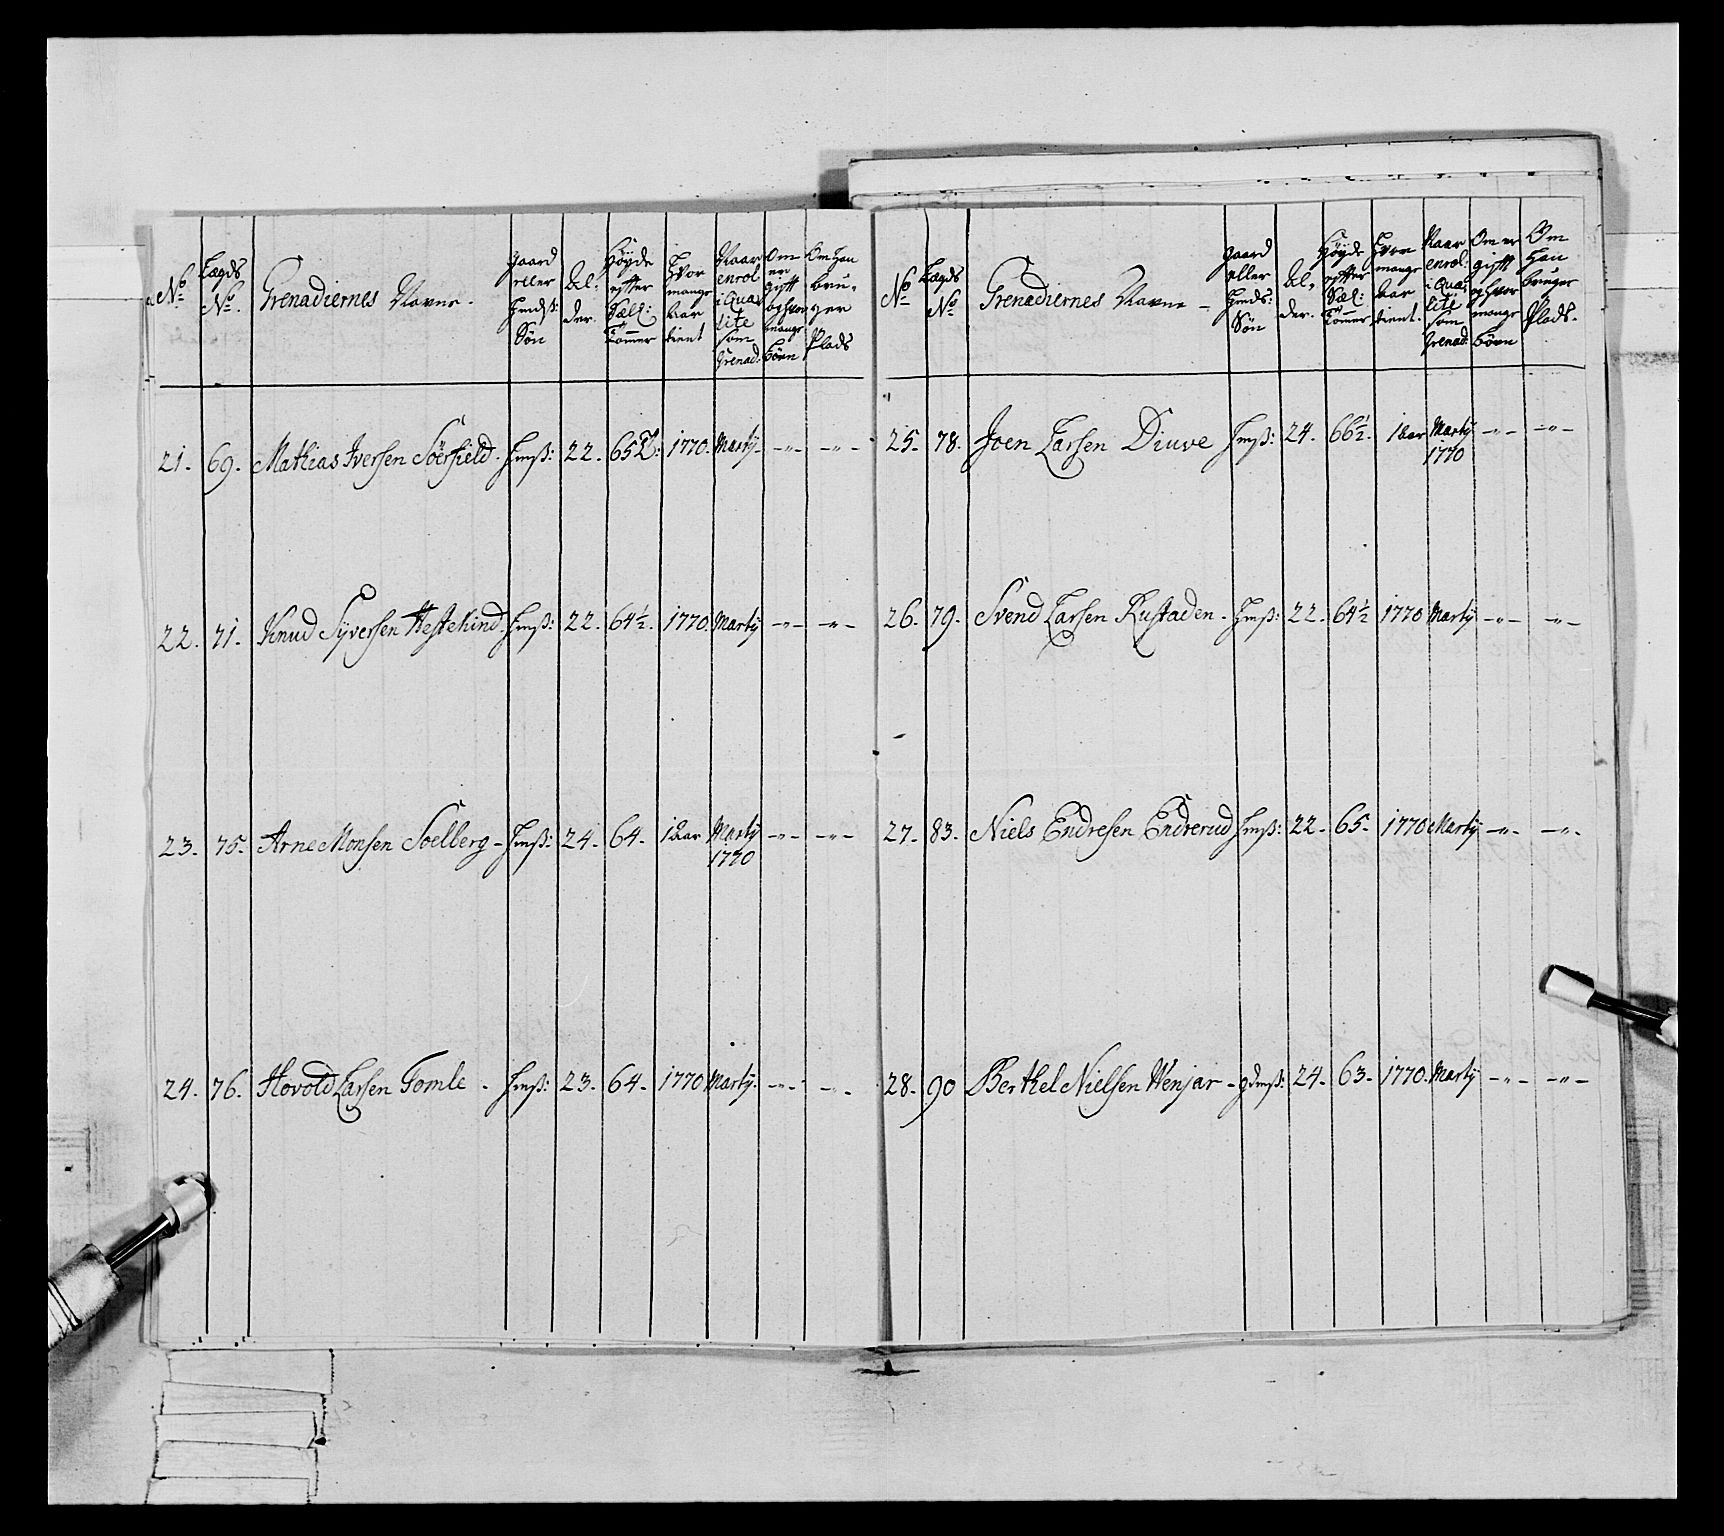 No
Lægds No.
Grenadiernes Navne.
Gaard eller Huusm: Søn
Al: der.
Høyde efter Sæll: Tommer
Hvor mange Aar tient
Naar enrol: i Qua: lite som Grenad:
Om er gift og hvor mange Børn
Om Han bru: ger Plads
21. 69. Mathias Iversen Söerfield. Hmß: 22. 65 1770. Marty -"- -"-
22. 71. Knud Syversen Hestekind. Hmß: 22. 64½. 1770. Marty -"- -"-
23. 75. Arne Monsen Soelberg - Hmß: 24. 64. 1 Aar Marty -"- -"-
1770
24. 76. Hovold Larsen Tomle - Hmß: 23. 64- 1770 Marty. -"- -"-
No
Lægds No
Grenadiernes Navne -
Gaard eller Huusm: Søn
Al, der.
Høyde efter Sæl: Tommer
Hvor mange Aar tient.
Naar enrol: i Qua: lite som Grenad:
Om er gift og hvor mange Børn
Om Han bruger Plads.
25. 78. Joen Larsen Diuve Hmß: 24. 66½. 1 Aar Marty -"- -"-
1770
26. 79. Svend Larsen Rustaden. Hmß: 22. 64½ 1770 Marty -"- -"-
27. 83. Niels Endresen Endrerud Hmß: 22. 65. 1770 Marty -"- -"-
28. 90 Berthel Nielsen Wenjar - gdmß: 24. 63. 1770. Marty -"- -"-